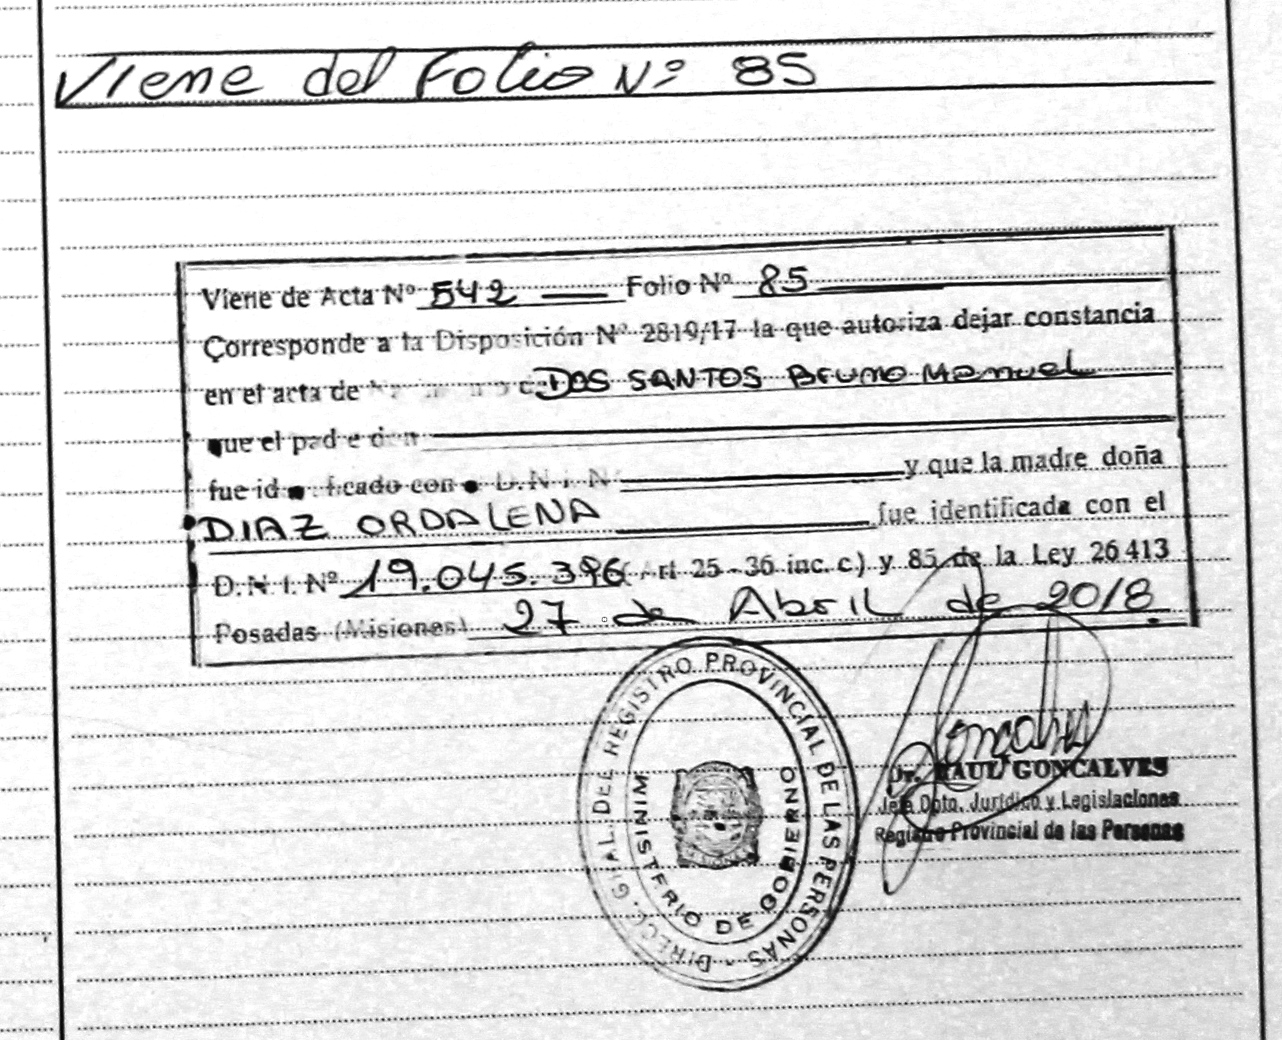 Viene del Folio Nº 85
Viene de Acta Nº 542 Folio Nº 85
Corresponde a la Disposición Nº 2819/17 la que autoriza dejar constancia
en el acta de DOS SANTOS Bruno Manuel
que el padre don
fue identificado con D.N.I. Nº y que la madre doña
DIAZ ORDALENA fue identificada con el
D.N.I. Nº 19.045.396 Art 25-36 inc. c) y 85 de la Ley 26 413
Posadas (Misiones) 27 de Abril de 2018.
DIREC. GRAL. DEL REGISTRO PROVINCIAL DE LAS PERSONAS
MINISTERIO DE GOBIERNO
Gonçalves
Dr. RAUL GONCALVES
Jefe Dpto. Jurídico y Legislaciones
Registro Provincial de las Personas